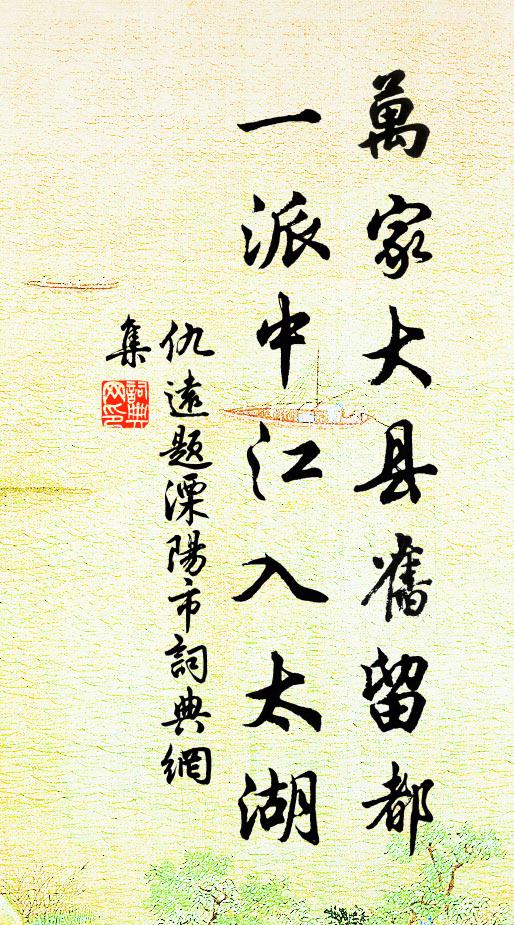 萬家大县舊留都
一派中江入太湖
仇遠題溧陽市詞典網
集
詞典
网印